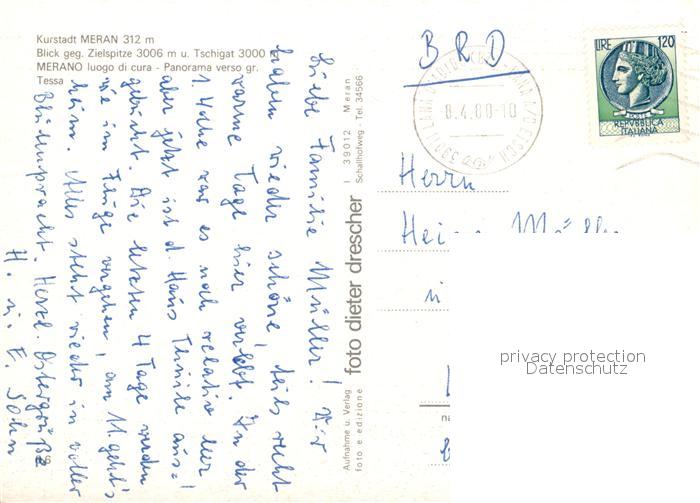 Kurstadt MERAN 312 m
Blick geg. Zielspitze 3006 m u. Tschigat 3000
MERANO luogo di cura - Panorama verso gr.
Tessa
Liebe Familie Müller! Wir
haben wieder schöne, teils recht
warme Tage hier verlebt. In der
1. Woche war es noch relativ leer
aber jetzt ist d. Haus Trinile aus=
gebucht. Die letzten 4 Tage werden
wie im Fluge vergehen, am 11. geht's
heim. Alles steht wieder in voller
Blütenpracht. Herzl. Ostergrüße
H. u. E. Sohn
Aufnahme u. Verlag
foto e edizione
foto dieter drescher
I 39012 Meran
Schallhofweg - Tel. 34566
BRD
8.4.80-10
LIRE 120
POSTE
REPVBBLICA
ITALIANA
Herrn
privacy protection
Datenschutz